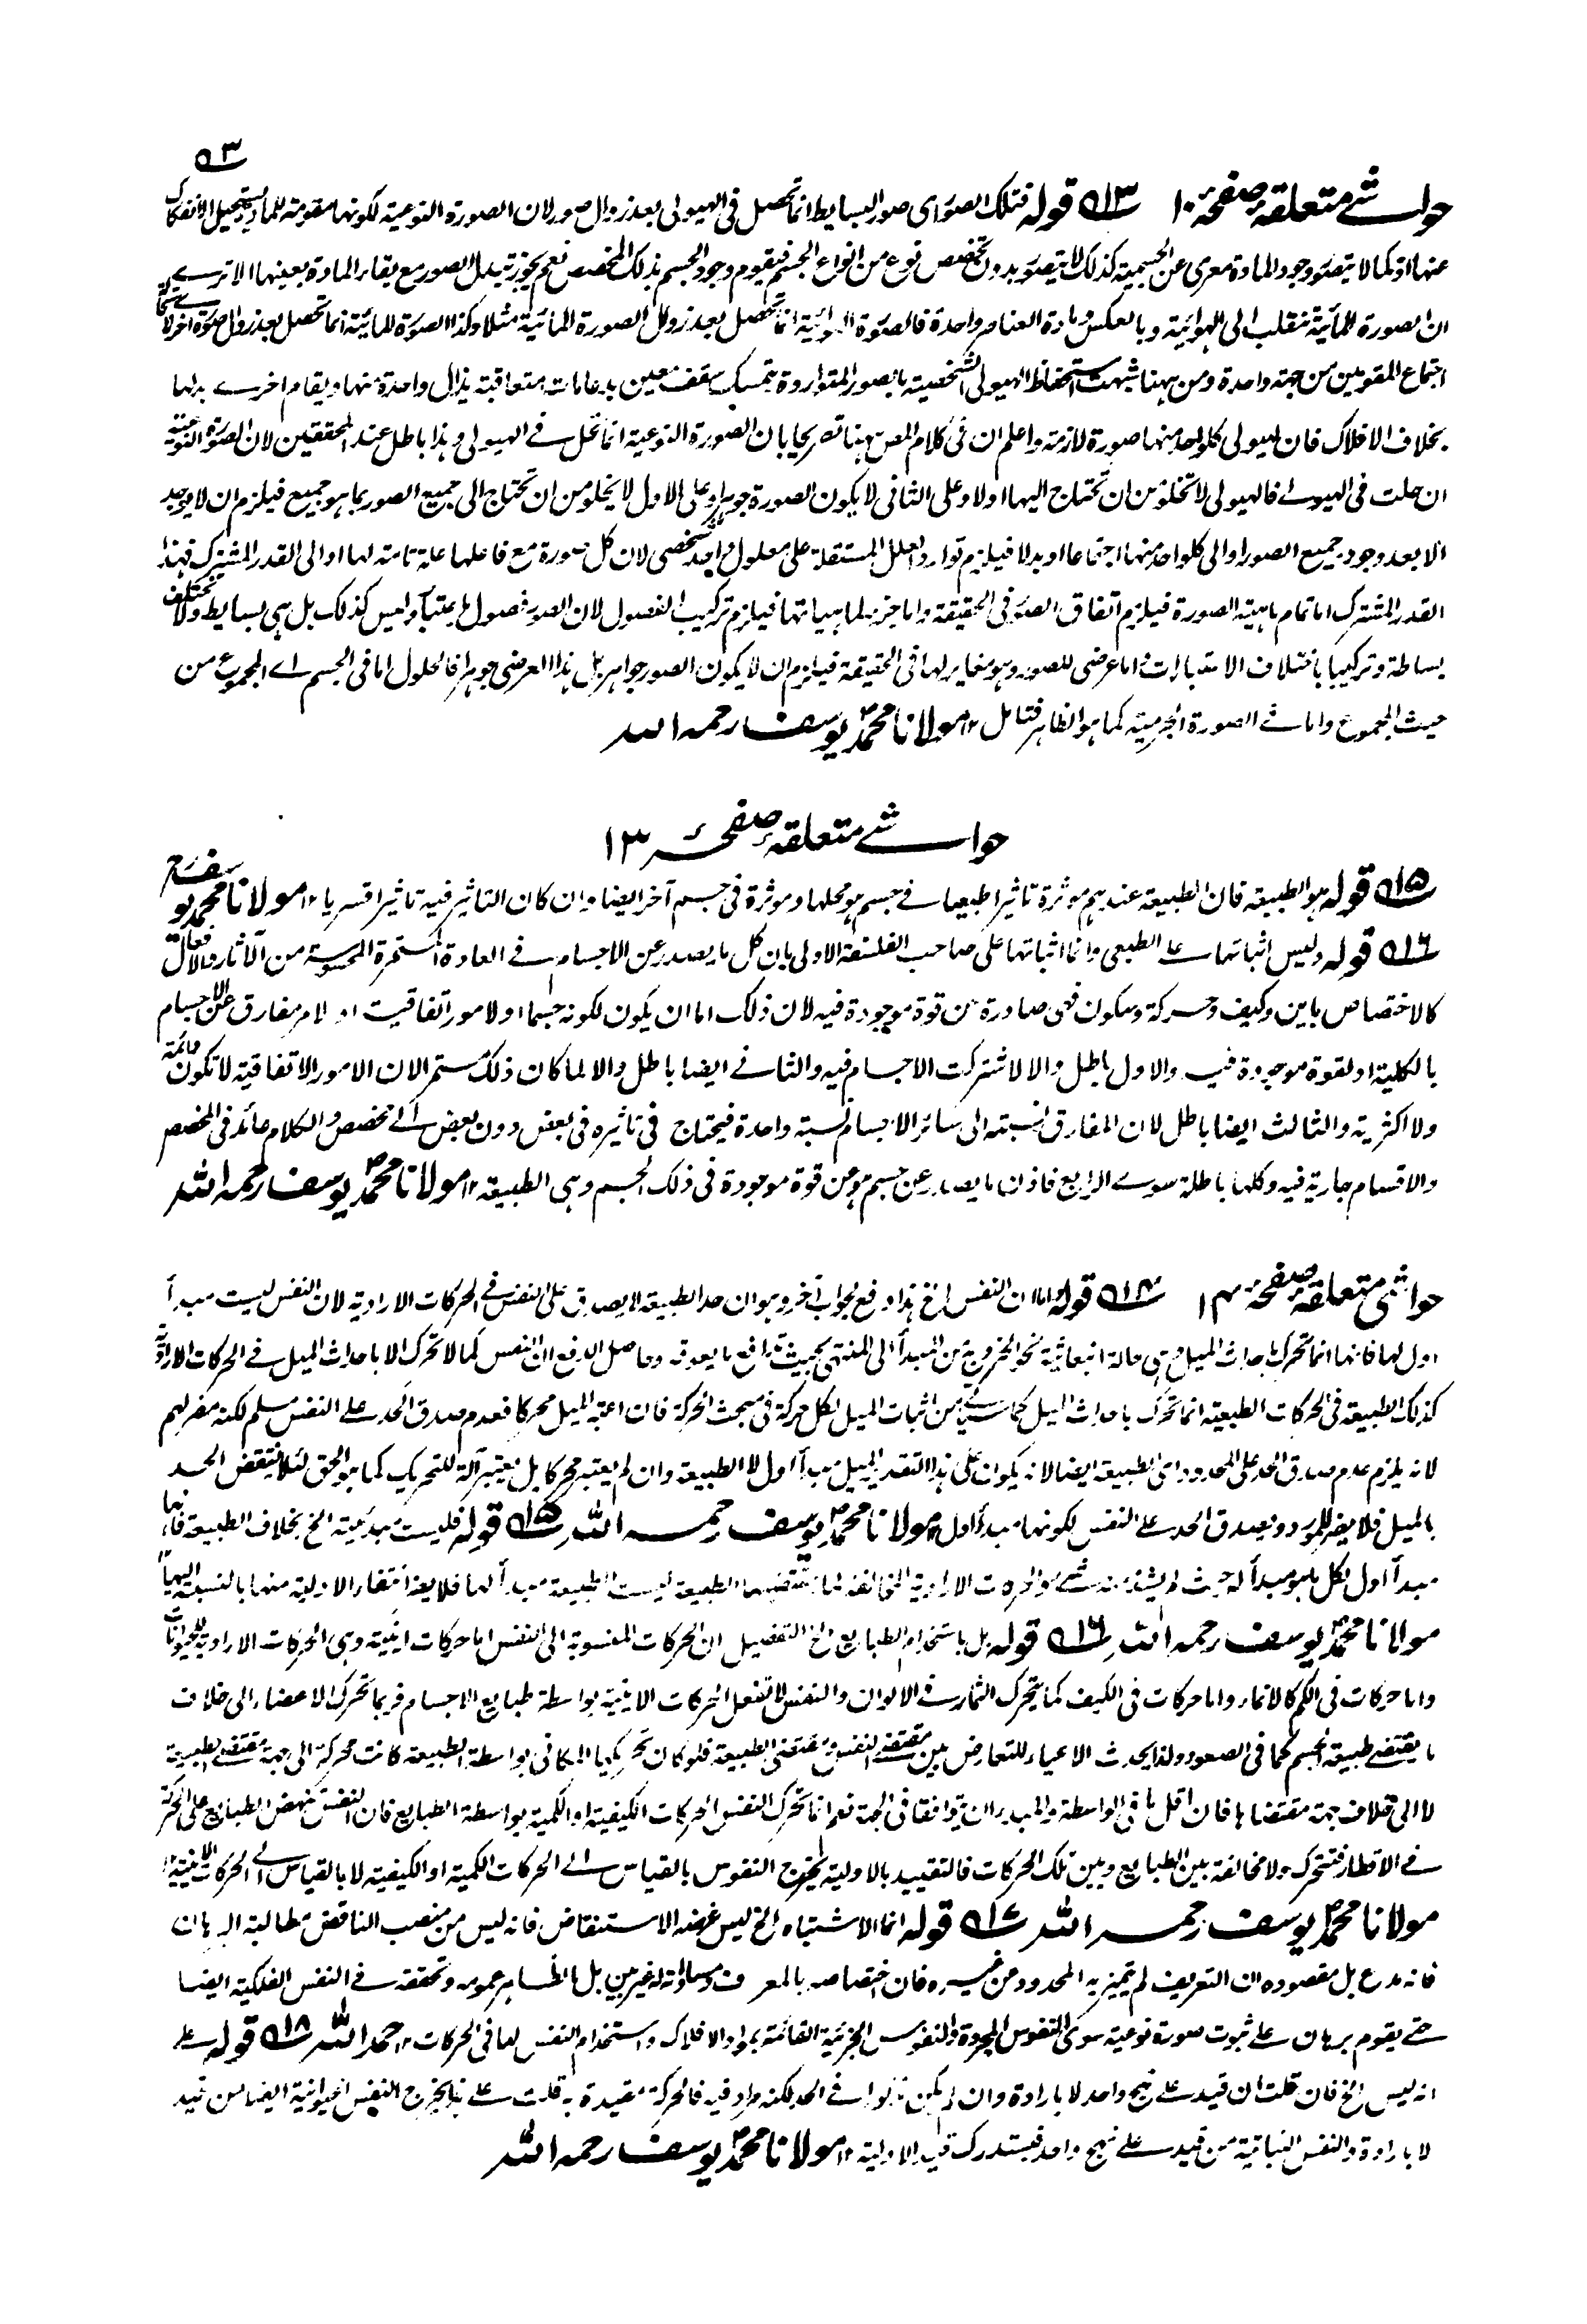 ٥٣
حواشے متعلقہ صفحہ ١٠ ١٣ قوله فتلك الصور اى صور البسايط انما تحصل فى الهيولى بعد زوال صور لان الصورة النوعية لكونها مقومة للمادة يستحيل الانفكاك
عنها اذ كما لا يتصور وجود المادة معرى عن الجسمية كذلك لا يتصور بدون تخصص نوع من انواع الجسم فيقوم وجود الجسم بذلك المخصص نعم يجوز تبدل الصور مع بقاء المادة بعينها الا ترے
ان الصورة المائية تنقلب الى الهوائية وبالعكس ومادة العناصر واحدة فالصورة الهوائية انما تحصل بعد زوال الصورة المائية مثلا وكذا الصورة المائية انما تحصل بعد زوال صورة اخرى لاستحالة
اجتماع المقومين من جهة واحدة ومن ههنا شبهت استحفاظ الهيولى الشخصية بالصور المتواردة بتمسك سقف معين بدعامات متعاقبة يزال واحدة منها ويقام اخرے بدلها
بخلاف الافلاك فان لهيولى كلواحد منها صورة لازمة واعلم ان فى كلام المص ههنا تصريحا بان الصورة النوعية انما تحل فے الهيولى وهذا باطل عند المحققين لان الصورة النوعية
ان حلت فى الهيولے فالهيولى لا تخلو من ان تحتاج اليها اولا وعلى الثانى لا يكون الصورة جوهرا وعلى الاول لا يخلو من ان تحتاج الى جميع الصور بما هو جميع فيلزم ان لا يوجد
الا بعد وجود جميع الصور او الى كلواحد منها اجتماعا او بدلا فيلزم توارد العلل المستقلة على معلول واحد شخصى لان كل صورة مع فاعلها علة تامة لها او الى القدر المشترك فهذا
القدر المشترك اما تمام ماهية الصورة فيلزم اتفاق الصور فى الحقيقة واما جزء لماهياتها فيلزم تركيب الفصول لان الصور فصول باعتبار وليس كذلك بل هى بسايط ولا تختلف
بساطة وتركيبا باختلاف الاعتبارات واما عرضى للصور وهو مغاير لها فى الحقيقة فيلزم ان لا يكون الصور جواهر بل هذا العرضى جوهرا فالحلول اما فى الجسم اے المجموع من
حيث المجموع واما فے الصورة الجرمية كما هو الظاهر فتامل ١٢ مولانا محمد يوسف رحمه الله
حواشے متعلقہ صفحہ ١٣
١٥ قوله هو الطبيعة فان الطبيعة عندهم مؤثرة تاثيرا طبيعيا فے جسم هو محلها ومؤثرة فى جسم آخر ايضا وان كان التاثير فيه تاثيرا قسريا ١٢ مولانا محمد يوسف رح
١٦ قوله وليس اثباتها علے الطبعى وانما اثباتها على صاحب الفلسفة الاولى بان كل ما يصدر عن الاجسام فے العادة المستمرة المحسوسة من الآثار والافعال
كالاختصاص باين وكيف وحركة وسكون فهى صادرة عن قوة موجودة فيه لان ذلك اما ان يكون لكونه جسما او لامور اتفاقية او لامر مفارق عن الاجسام
بالكلية او لقوة موجودة فيه والاول باطل والا لاشتركت الاجسام فيه والثانے ايضا باطل والا لما كان ذلك مستمرا لان الامور الاتفاقية لا تكون دائمة
ولا اكثرية والثالث ايضا باطل لان المفارق نسبته الى سائر الاجسام نسبة واحدة فيحتاج فى تاثيره فى بعض دون بعض الے مخصص والكلام عائد فى المخصص
والاقسام جارية فيه وكلها باطلة سوے الرابع فاذن ما يصدر عن جسم هو عن قوة موجودة فى ذلك الجسم وهى الطبيعة ١٢ مولانا محمد يوسف رحمه الله
حواشى متعلقہ صفحہ ١٤ ١٤ قوله واما ان النفس الخ هذا دفع بجواب آخر وهو ان حد الطبيعة لا يصدق على النفس فے الحركات الارادية لان النفس ليست مبدأ
اول لها فانها انما تحرك باحداث الميل وهى حالة انبعاثية نحو الخروج من المبدأ الى المنتهى بحيث تدافع ما يعوقه وحاصل الدفع ان النفس كما لا تحرك الا باحداث الميل فے الحركات الارادية
كذلك الطبيعة فى الحركات الطبيعية انما تحرك باحداث الميل كما سياتے من اثبات الميل لكل حركة فى مبحث الحركة فان اعتبر الميل محركا فعدم صدق الحد علے النفس مسلم لكنه مضر لهم
لانه يلزم عدم صدق الحد على المحدود اى الطبيعة ايضا لانه يكون على هذا التقدير الميل مبدأ اول لا الطبيعة وان لم يعتبر محركا بل يعتبر آلة للتحريك كما هو الحق لئلا ينتقض الحد
بالميل فلا يضر للمورد ويصدق الحد علے النفس لكونها مبدأ اول ١٢ مولانا محمد يوسف رحمه الله ١٥ قوله فليست مبدئية الخ بخلاف الطبيعة فانها
مبدأ اول لكل ما هو مبدأ له حيث لا يشذ منه شے والحركات الارادية المخالفة لما تقتضيها الطبيعة ليست الطبيعة مبدأ لها فلا يضر انتفاء الاولية منها بالنسبة اليها ١٢
مولانا محمد يوسف رحمه الله ١٦ قوله بل باستخدام الطبايع الخ التفصيل ان الحركات المنسوبة الى النفس اما حركات اينية وهى الحركات الارادية للحيوانات
واما حركات فى الكم كالانماء واما حركات فى الكيف كما يتحرك الثمار فے الالوان والنفس لا تفعل الحركات الاينية بواسطة طبايع الاجسام فربما تحرك الاعضاء الى خلاف
ما يقتضے طبيعة الجسم كما فى الصعود ولذا يحدث الاعياء للتعارض بين مقتضے النفس ومقتضى الطبيعة فلو كان تحريكها المكانى بواسطة الطبيعة كانت محركة الى جهة مقتضے الطبيعة
لا الى خلاف جهة مقتضاها فان اقل ما فى الواسطة والمبدء ان يتوافقا فى الجهة نعم انما تحرك النفس الحركات الكيفية او الكمية بواسطة الطبايع فان النفس تنهض الطبايع على الحركة
فے الاقطار فتتحرك ولا مخالفة بين الطبايع وبين تلك الحركات فالتقييد بالاولية يخرج النفوس بالقياس الے الحركات الكمية او الكيفية لا بالقياس الے الحركات الاينية ١٢
مولانا محمد يوسف رحمه الله ١٧ قوله انما الاشتباه الخ ليس غرضه الاستنقاض فانه ليس من منصب الناقض مطالبة البرهان
فانه مدع بل مقصوده ان التعريف لم يتميز به المحدود عن غيره فان اختصاصه بالمعرف ومساواته له غير بين بل الظاهر عمومه وتحققه فے النفس الفلكية ايضا
حتے يقوم برهان علے ثبوت صورة نوعية سوى النفوس المجردة والنفوس الجزئية القائمة بمواد الافلاك واستخدام النفس لها فى الحركات ١٢ حمد الله ١٨ قوله علے
انه ليس الخ فان قلت ان قيد علے نهج واحد لا بارادة وان لم يكن مذكورا فے الحد لكنه مراد فيه فالحركة مقيدة به قلت علے هذا يخرج النفس الحيوانية ايضا من قيد
لا بارادة والنفس النباتية من قيد علے نهج واحد فيستدرك قيد الاولية ١٢ مولانا محمد يوسف رحمه الله